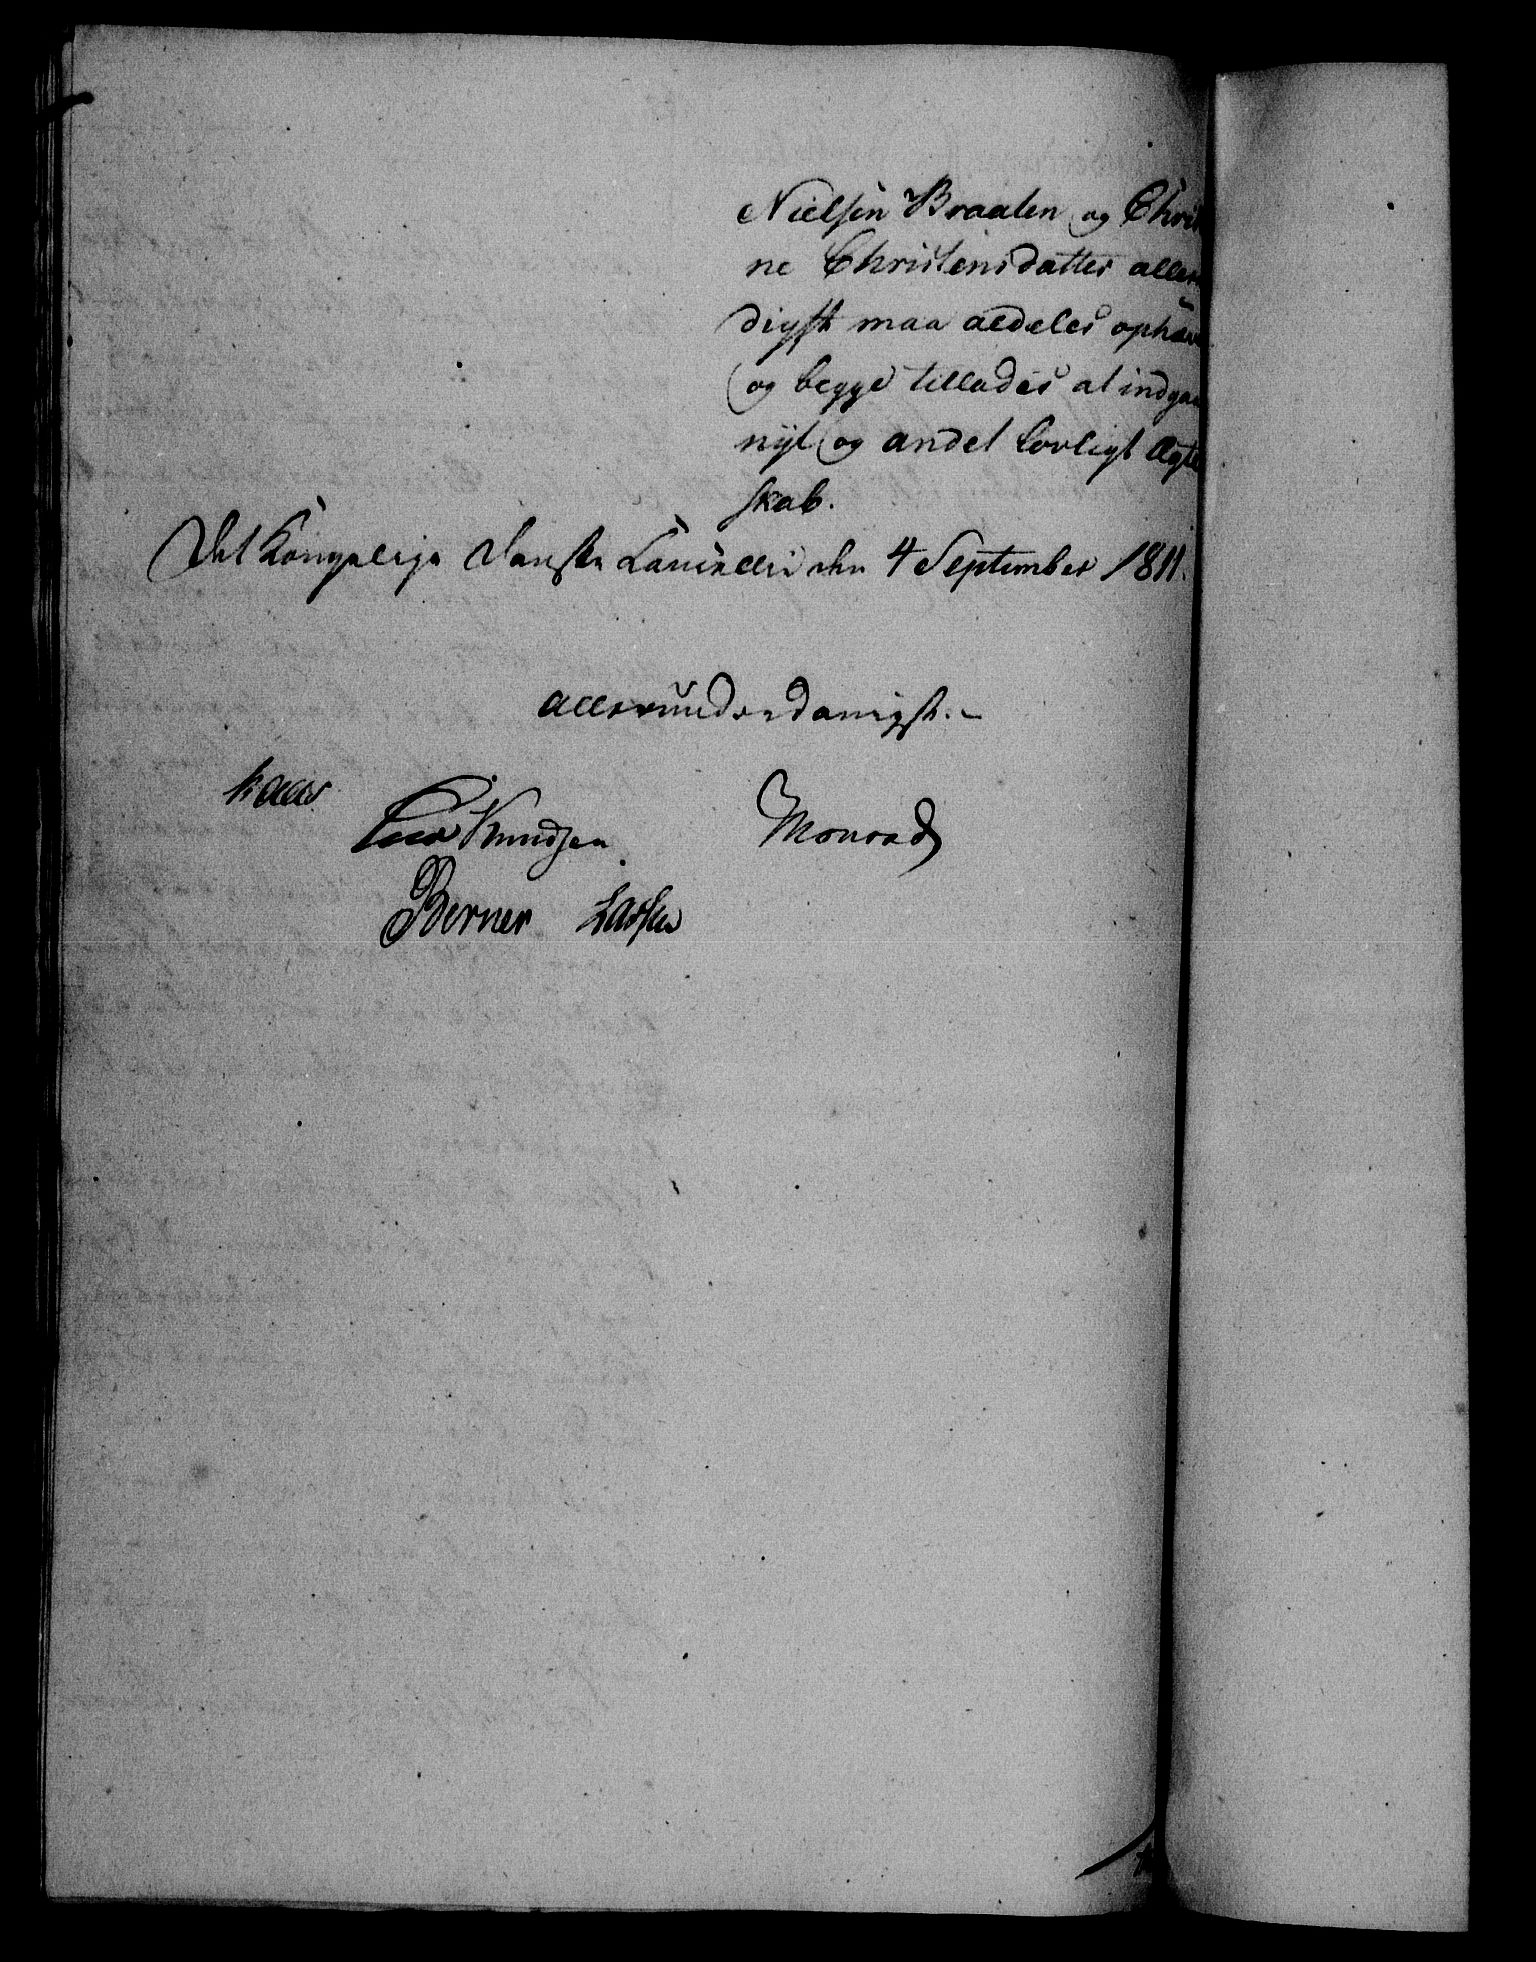 Nielsen Braaten og Chris
ne Christensdatter aller
digst maa aldeles ophæve
og begge tillades at indgaae
nyt og andet lovligt Ægte
skab.
Det Kongelige Danske Cancellie den 4 September 1811.
allerunderdanigst.
Kaas
Knudsen Monrad
Berner Lassen